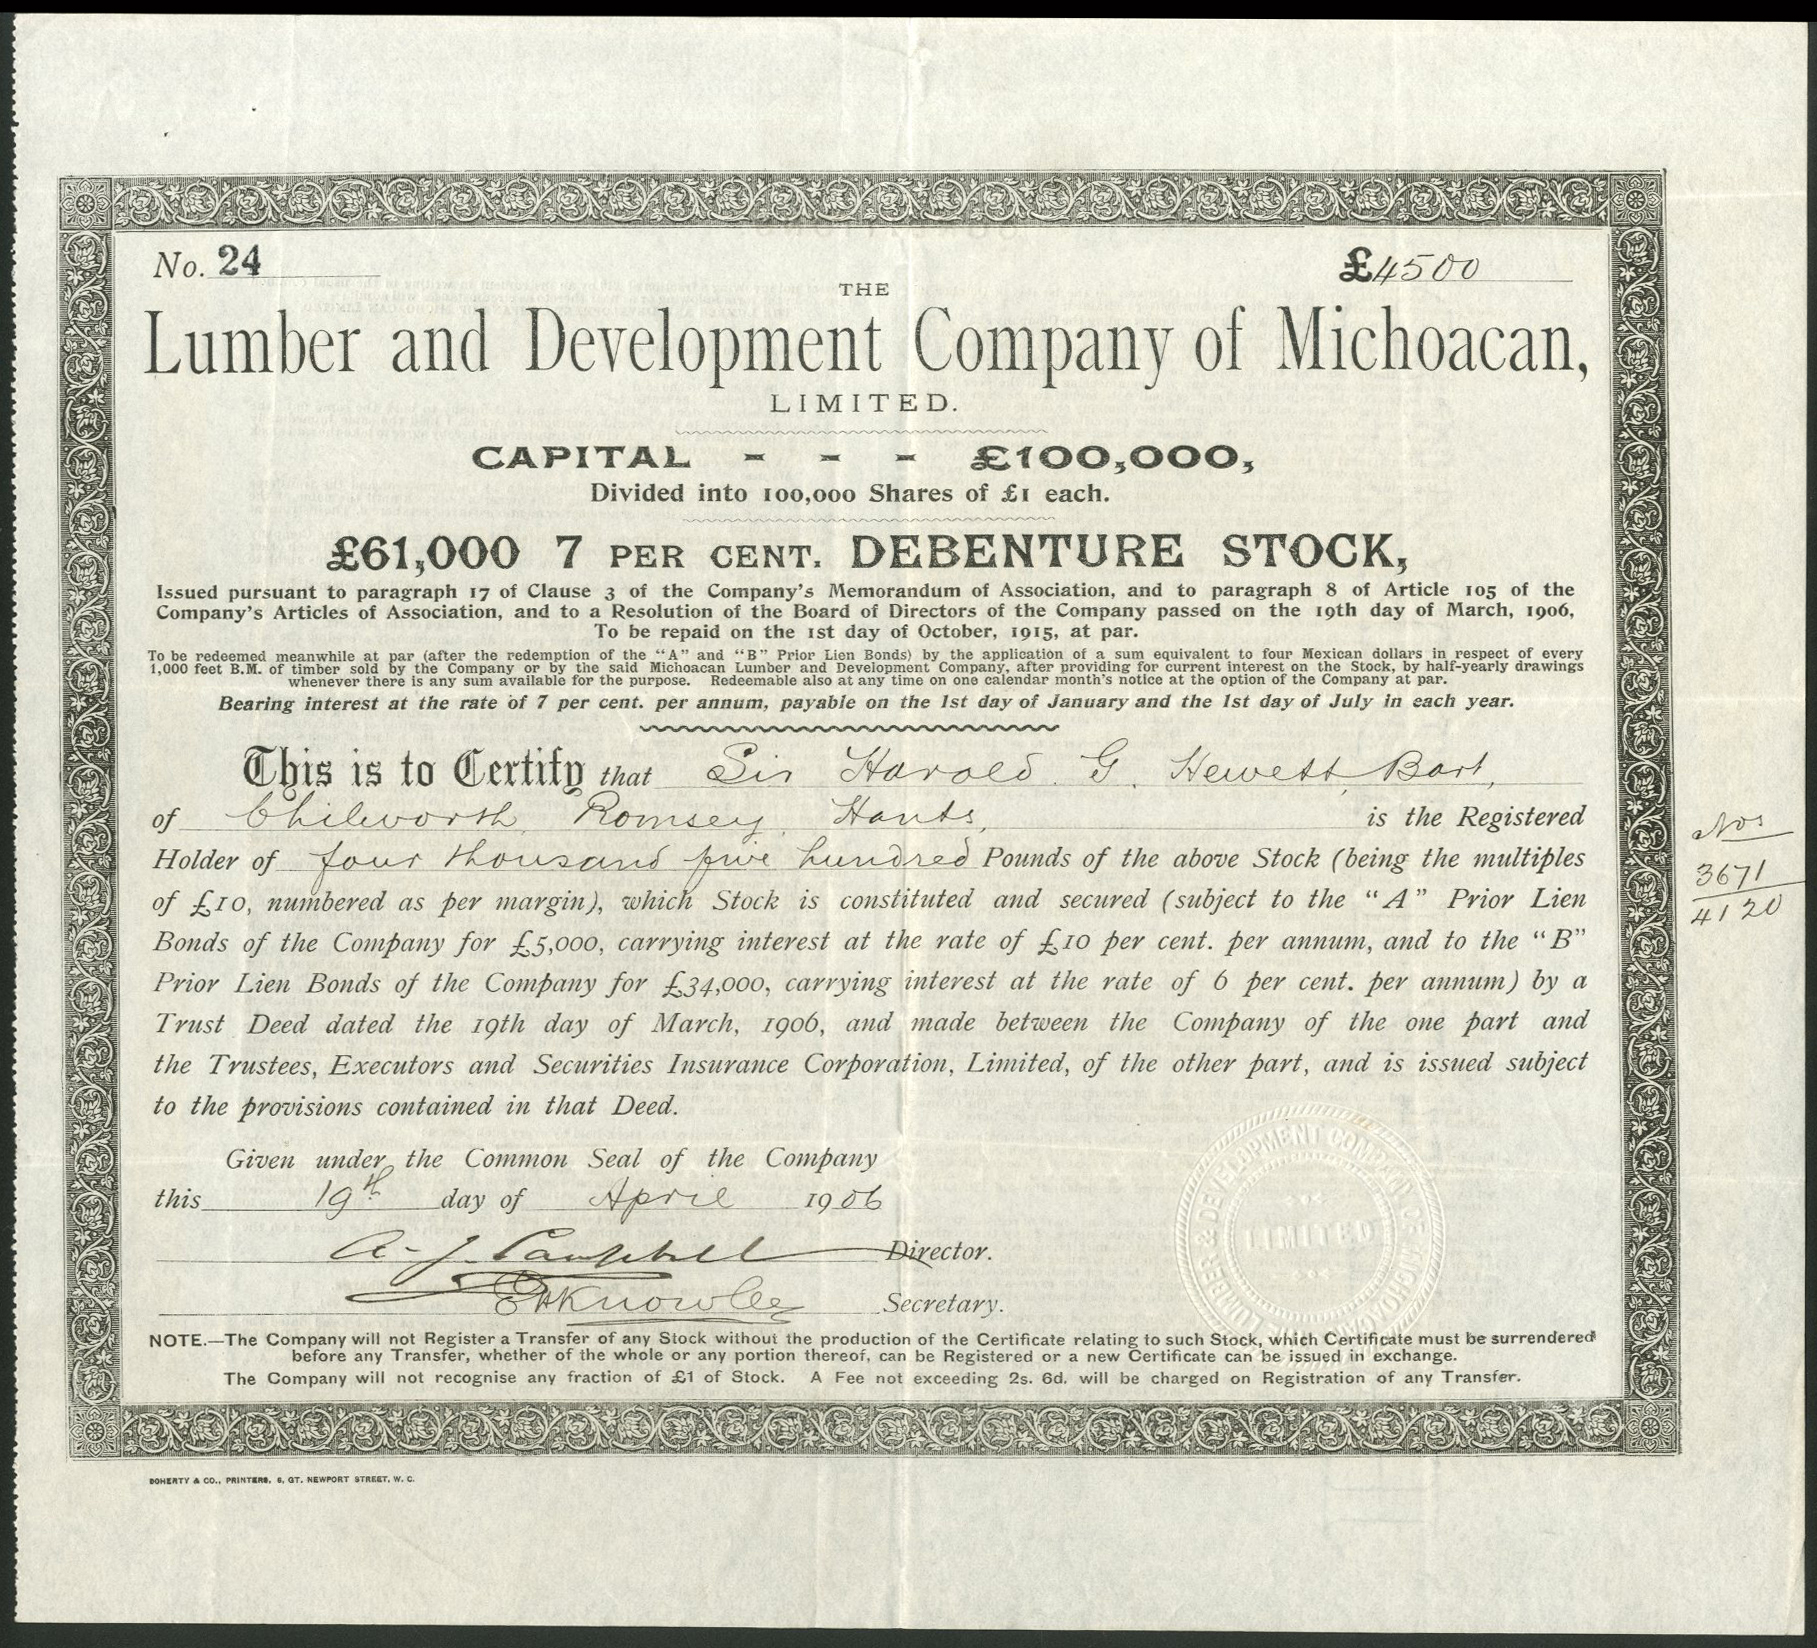 No. 24
£4500
THE
Lumber and Development Company of Michoacan,
LIMITED.
CAPITAL - - - £100,000,
Divided into 100,000 Shares of £1 each.
£61,000 7 PER CENT. DEBENTURE STOCK,
Issued pursuant to paragraph 17 of Clause 3 of the Company's Memorandum of Association, and to paragraph 8 of Article 105 of the
Company's Articles of Association, and to a Resolution of the Board of Directors of the Company passed on the 19th day of March, 1906,
To be repaid on the 1st day of October, 1915, at par.
To be redeemed meanwhile at par (after the redemption of the "A" and "B" Prior Lien Bonds) by the application of a sum equivalent to four Mexican dollars in respect of every
1,000 feet B.M. of timber sold by the Company or by the said Michoacan Lumber and Development Company, after providing for current interest on the Stock, by half-yearly drawings
whenever there is any sum available for the purpose. Redeemable also at any time on one calendar month's notice at the option of the Company at par.
Bearing interest at the rate of 7 per cent. per annum, payable on the 1st day of January and the 1st day of July in each year.
This is to Certify that Sir Harold G. Hewett, Bart,
of Chilworth, Romsey, Hants, is the Registered
Holder of four thousand five hundred Pounds of the above Stock (being the multiples
of £10, numbered as per margin), which Stock is constituted and secured (subject to the "A" Prior Lien
Bonds of the Company for £5,000, carrying interest at the rate of £10 per cent. per annum, and to the "B"
Prior Lien Bonds of the Company for £34,000, carrying interest at the rate of 6 per cent. per annum) by a
Trust Deed dated the 19th day of March, 1906, and made between the Company of the one part and
the Trustees, Executors and Securities Insurance Corporation, Limited, of the other part, and is issued subject
to the provisions contained in that Deed.
Nos
3671
4120
Given under the Common Seal of the Company
this 19th day of April 1906
A. J. Campbell Director.
E H Knowles Secretary.
LUMBER & DEVELOPMENT COMPANY OF MICHOACAN
LIMITED
NOTE.—The Company will not Register a Transfer of any Stock without the production of the Certificate relating to such Stock, which Certificate must be surrendered
before any Transfer, whether of the whole or any portion thereof, can be Registered or a new Certificate can be issued in exchange.
The Company will not recognise any fraction of £1 of Stock. A Fee not exceeding 2s. 6d. will be charged on Registration of any Transfer.
DOHERTY & CO., PRINTERS, 6, GT. NEWPORT STREET, W. C.